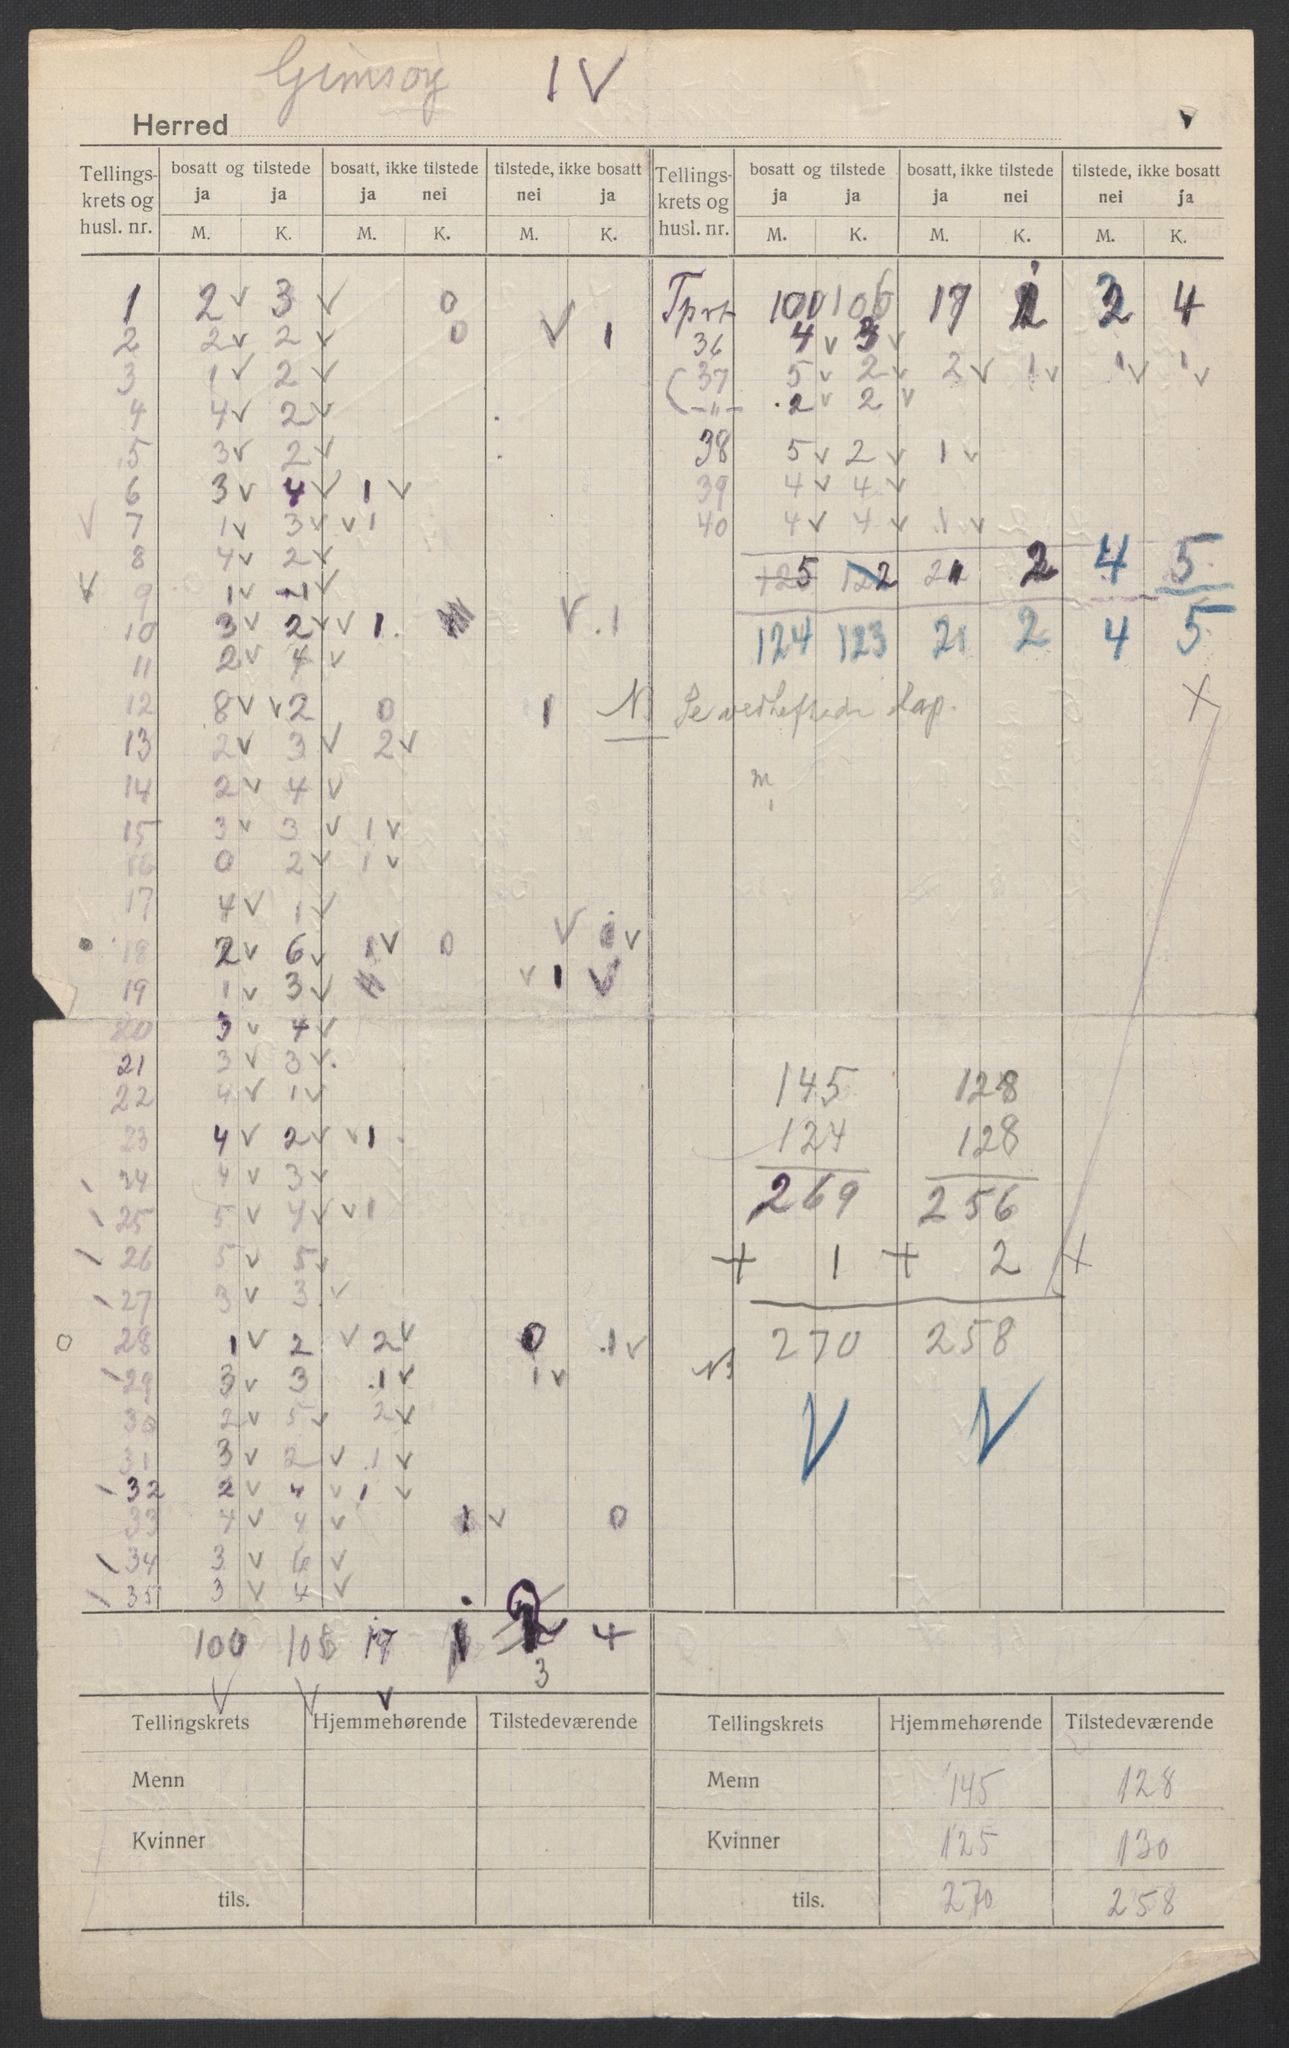 Gimsøy IV
Herred
Tellings-krets og husl. nr. | bosatt og tilstede ja ja | bosatt, ikke tilstede ja nei | tilstede, ikke bosatt nei ja | Tellings-krets og husl. nr. | bosatt og tilstede ja ja | bosatt, ikke tilstede ja nei | tilstede, ikke bosatt nei ja
M. K. M. K. M. K. M. K. M. K. M. K.
1 2 v 3 v 0 Tprt 100 106 17 1 3 4
2 2 v 2 v 0 v 1 36 4 v 3 v
3 1 v 2 v (37 5 v 2 v 2 v 1 v 1 v 1 v
4 4 v 2 v (-"- 2 v 2 v
5 3 v 2 v 38 5 v 2 v 1 v
6 3 v 4 v 1 v 39 4 v 4 v
v 7 1 v 3 v v 1 40 4 v 4 v 1 v
8 4 v 2 v 125 122 21 2 4 5
v 9 1 v 1 v
10 3 v 2 v v 1 v 1 124 123 21 2 4 5
11 2 v 4 v
12 8 v v 2 0 1 NB Se vedheftede lap. +
13 2 v 3 v 2 v
14 2 v 4 v m
15 3 v 3 v 1 v
16 0 2 v 1 v
17 4 v 1 v
18 2 v 6 v 1 v 0 v 1 v
19 1 v 3 v v 1 v
20 3 v 4 v
21 3 v 3 v 145 128
22 4 v 1 v
23 4 v 2 v v 1 124 128
24 4 v 3 v 269 256
25 5 v 4 v v 1
26 5 v 5 v + 1 + 2 +
27 3 v 3 v
28 1 v 2 v 2 v 0 1 v 270 258
29 3 v 3 1 v 1 v NB
30 2 v 5 v 2 v v v
31 3 v 2 v 1 v
32 2 v 4 v 1 v
33 4 v 4 v 1 v 0
34 3 v 6 v
35 3 v 4 v
100 106 17 1 3 4
v v v
Tellingskrets Hjemmehørende Tilstedeværende Tellingskrets Hjemmehørende Tilstedeværende
Menn Menn 145 128
Kvinner Kvinner 125 130
tils. tils. 270 258